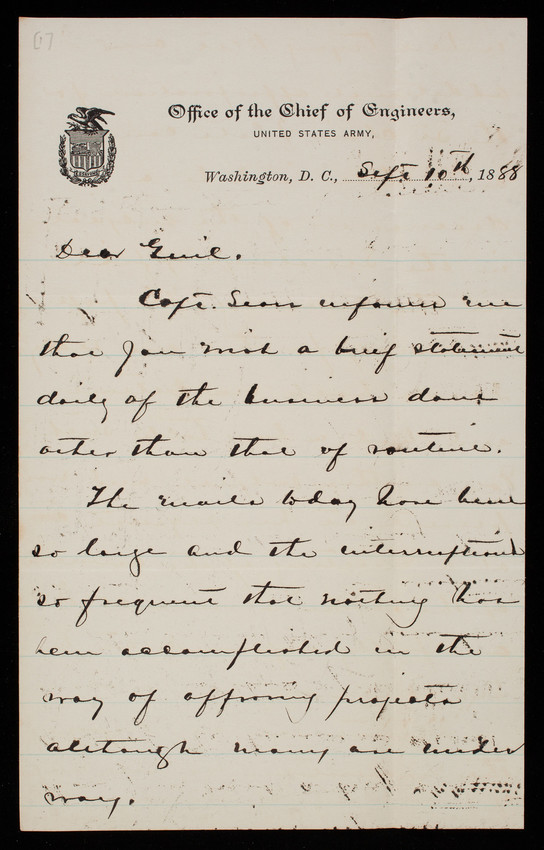 Office of the Chief of Engineers,
UNITED STATES ARMY,
Washington, D. C., Sept 10th, 1888
Dear Genl.
Capt. informs me
that you wish a brief statement
daily of the business done
other than that of routine.
The mails today have been
so large and the interruptions
so frequent that nothing has
been accomplished in the
way of approving projects
although many are under
way.